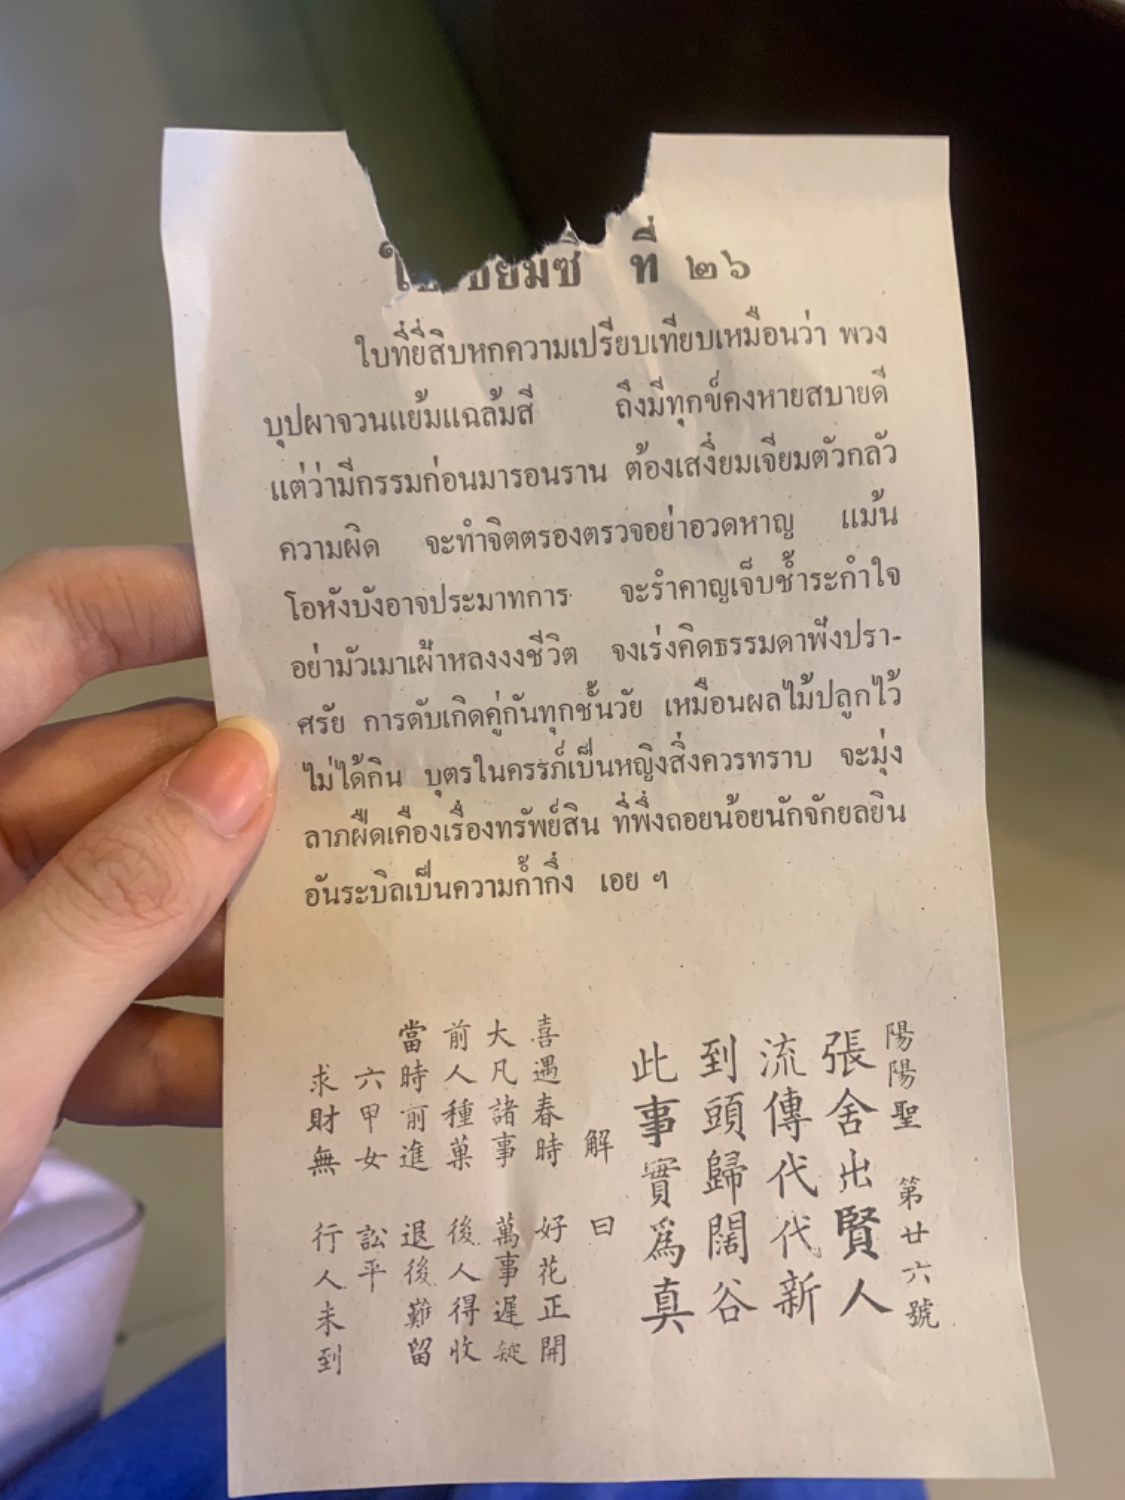 ใบเซียมซี ที่ ๒๖
ใบที่ยี่สิบหกความเปรียบเทียบเหมือนว่า พวง
บุปผาจวนแย้มแฉล้มสี ถึงมีทุกข์คงหายสบายดี
แต่ว่ามีกรรมก่อนมารอนราน ต้องเสงี่ยมเจียมตัวกลัว
ความผิด จะทำจิตตรองตรวจอย่าอวดหาญ แม้น
โอหังบังอาจประมาทการ จะรำคาญเจ็บช้ำระกำใจ
อย่ามัวเมาเฝ้าหลงงงชีวิต จงเร่งคิดธรรมดาฟังปรา-
ศรัย การดับเกิดคู่กันทุกชั้นวัย เหมือนผลไม้ปลูกไว้
ไม่ได้กิน บุตรในครรภ์เป็นหญิงสิ่งควรทราบ จะมุ่ง
ลาภผืดเคืองเรื่องทรัพย์สิน ที่พึ่งถอยน้อยนักจักยลยิน
อันระบิลเป็นความก้ำกึ่ง เอย ๆ
陽陽聖 第廿六號
張舍出賢人
流傳代代新
到頭歸闊谷
此事實為真
解曰
喜遇春時 好花正開
大凡諸事 萬事遲
前人種菓 後人得收
當時前進 退後難留
六甲女 訟平
求財無 行人未到